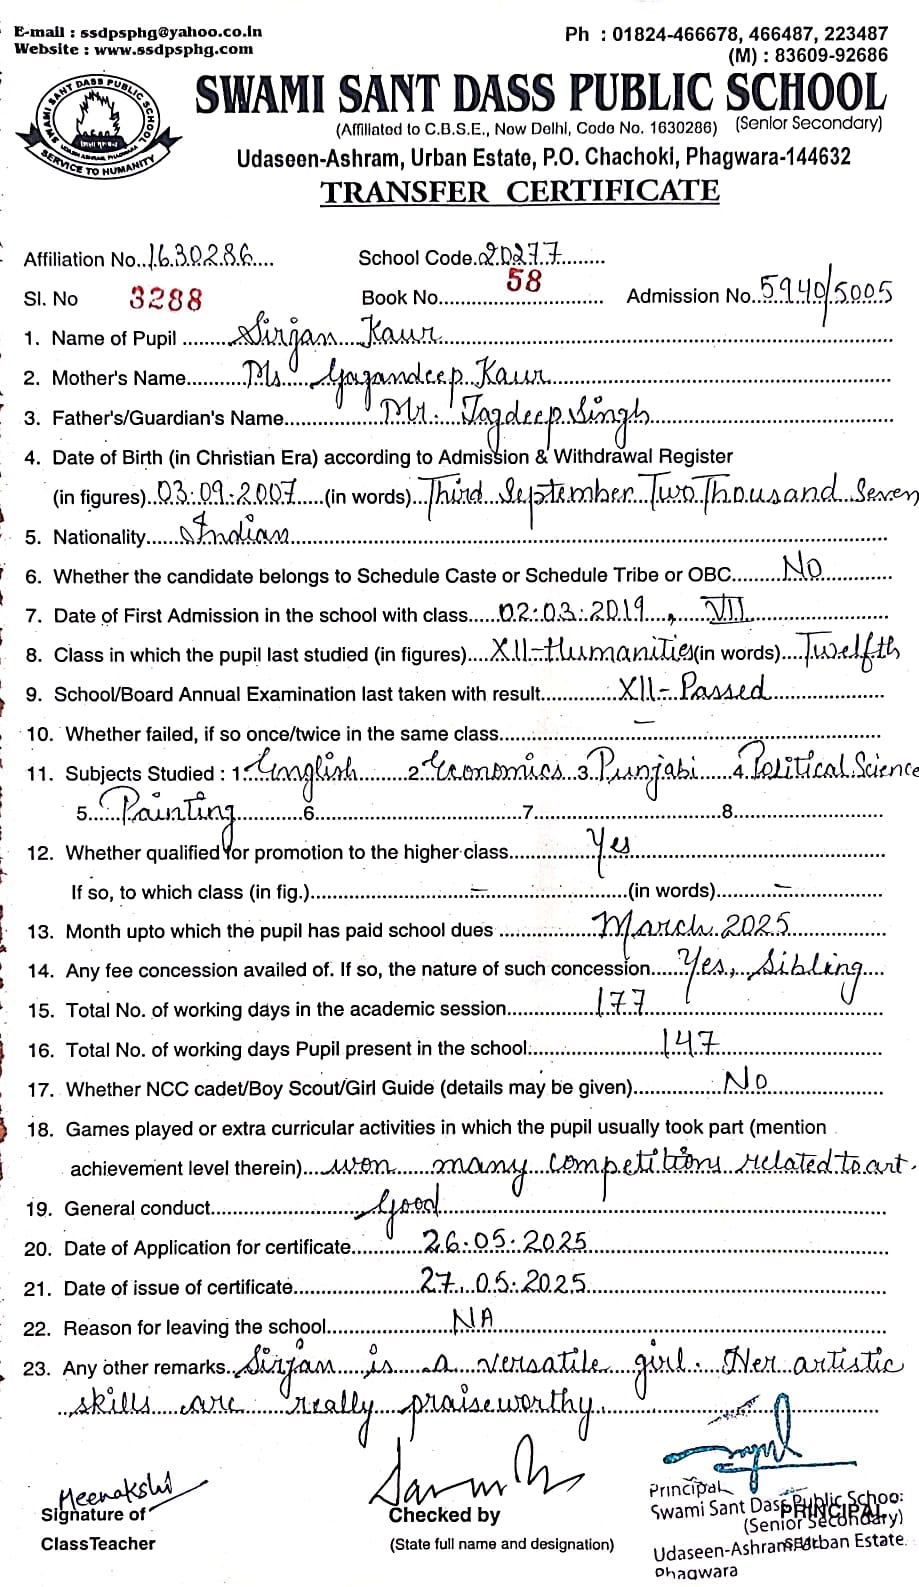 E-mail : ssdpsphg@yahoo.co.in
Website : www.ssdpsphg.com
Ph : 01824-466678, 466487, 223487
(M) : 83609-92686
SWAMI SANT DASS PUBLIC SCHOOL
SERVICE TO HUMANITY
SWAMI SANT DASS PUBLIC SCHOOL
(Affiliated to C.B.S.E., New Delhi, Code No. 1630286) (Senior Secondary)
Udaseen-Ashram, Urban Estate, P.O. Chachoki, Phagwara-144632
TRANSFER CERTIFICATE
Affiliation No. 1630286 School Code. 20277
Sl. No 3288 Book No. 58 Admission No. 5940/5005
1. Name of Pupil Sirjan Kaur
2. Mother's Name Ms Gagandeep Kaur
3. Father's/Guardian's Name Mr. Jagdeep Singh
4. Date of Birth (in Christian Era) according to Admission & Withdrawal Register
(in figures) 03.09.2007 (in words) Third September Two Thousand Seven
5. Nationality Indian
6. Whether the candidate belongs to Schedule Caste or Schedule Tribe or OBC No
7. Date of First Admission in the school with class 02.03.2019, VII
8. Class in which the pupil last studied (in figures) XII-Humanities (in words) Twelfth
9. School/Board Annual Examination last taken with result XII- Passed
10. Whether failed, if so once/twice in the same class –
11. Subjects Studied : 1. English 2. Economics 3. Punjabi 4. Political Science
5. Painting 6 7 8
12. Whether qualified for promotion to the higher class Yes
If so, to which class (in fig.) – (in words) –
13. Month upto which the pupil has paid school dues March 2025
14. Any fee concession availed of. If so, the nature of such concession Yes, Sibling
15. Total No. of working days in the academic session 177
16. Total No. of working days Pupil present in the school 147
17. Whether NCC cadet/Boy Scout/Girl Guide (details may be given) No
18. Games played or extra curricular activities in which the pupil usually took part (mention
achievement level therein) won many competitions related to art.
19. General conduct Good
20. Date of Application for certificate 26.05.2025
21. Date of issue of certificate 27.05.2025
22. Reason for leaving the school NA
23. Any other remarks Sirjan is a versatile girl. Her artistic
skills are really praiseworthy
Meenakshi
Signature of
ClassTeacher
Checked by
(State full name and designation)
Principal
Swami Sant Dass Public School
PRINCIPAL
(Senior Secondary)
Udaseen-Ashram, Urban Estate.
Phagwara